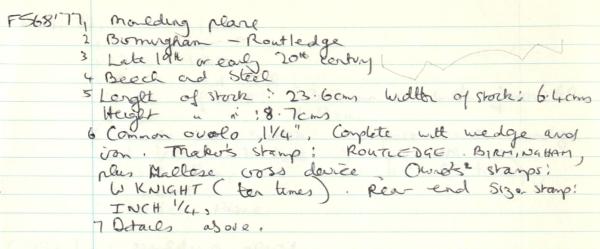 FS68'77, 1 Moulding plane
2 Birmingham - Routledge
3 Late 19th or early 20th century
4 Beech and steel
5 Length of stock : 23.6cms width of stock: 6.4cms
Height " " : 8.7cms
6 Common ovolo 1¼", Complete with wedge and
iron. Maker's stamp: ROUTLEDGE. BIRMINGHAM,
plus Maltese cross device. Owner's stamps:
W KNIGHT (ten times). Rear end size stamp:
INCH ¼,
7 Details above.